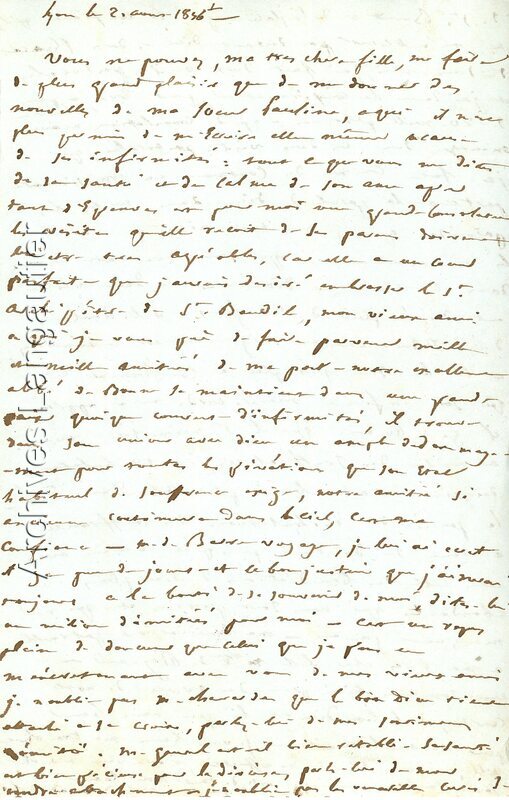 Lyon le 2 aous 1856
Vous ne pouvez, ma tres chere fille, me faire
de plus grand plaisir que de me donner des
nouvelles de ma Soeur Pauline, a qui il n'est
plus permis de m'Ecrire elle même a cause
de ses infirmités : tout ce que vous me dites
de sa santé et du calme de son ame après
tant d'Epreuves est pour moi une grande Consolation
les visites qu'elle reçoit de ses parens doivent
lui être tres agréables, car elle a un Coeur
parfait - que j'aurais desiré embrasser le
de St Baudil, mon vieux ami
je vous prie de faire parvenir mille
et mille amitiés de ma part - notre excellent
abbé de Bonne se maintient dans une grande
paix quoique couvert d'infirmités, il trouve
dans son union avec dieu un ample dedommage-
-ment pour toutes les privations que son Etat
habituel de souffrance exige, notre amitié si
ancienne continuera dans le Ciel, c'est ma
Confiance - M. de voyage, je lui ai ecrit
il y a quelques jours - et le bon que j'aimerai
toujours a la bonté de se souvenir de moi, dites-lui
un milion d'amitiés pour moi - C'est un voyage
plein de douceur que celui que je fais en
m'entretenant avec vous de mes vieux amis
je n'oublie pas que le bon Dieu tient
attaché a sa Croix, parlez-lui de mes sentimens
est-il bien rétabli sa santé
est bien précieuse pour le diocèse, parlez-lui de mon
tendre attachement - je n'oublie pas
Archives-Lengaufier